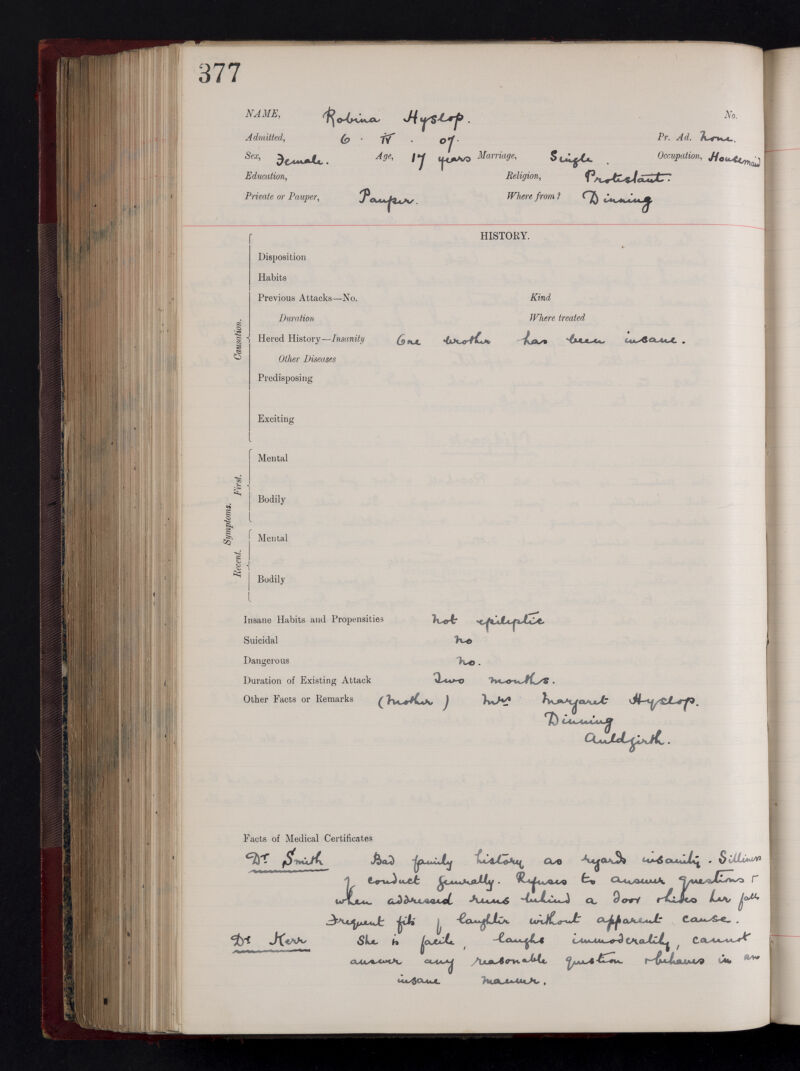 377
NAME, Robina Hyslop. No.
Admitted, 6 . IV . 07. Pr. Ad. None.
Sex, Female. Age, 17 years Marriage, Single . Occupation, Housemaid
Education, Religion, Protestant.
Private or Pauper, Pauper. Where from? Dinning
HISTORY.
Disposition
Habits
Previous Attacks—No. Kind
Duration Where treated
Causation.
Hered History—Insanity One brother has been insane.
Other Diseases
Predisposing
Exciting
Symptoms.
First.
Mental
Bodily
Recent.
Mental
Bodily
Insane Habits and Propensities not epileptic
Suicidal no
Dangerous no.
Duration of Existing Attack Two months.
Other Facts or Remarks (Mother) Mrs Margaret Hyslop.
Dinning
Auldgirth.
Facts of Medical Certificates
Dr Smith Bad family history as regards insanity. Silliness
of conduct generally. Refuses to answer questions &
when addressed runs behind a door & hides her face
Frequent fits of laughter without apparent cause.
Dr Kerr She is facile, laughs immoderately, cannot
answer any reasonable question & behaves in an
insane manner.